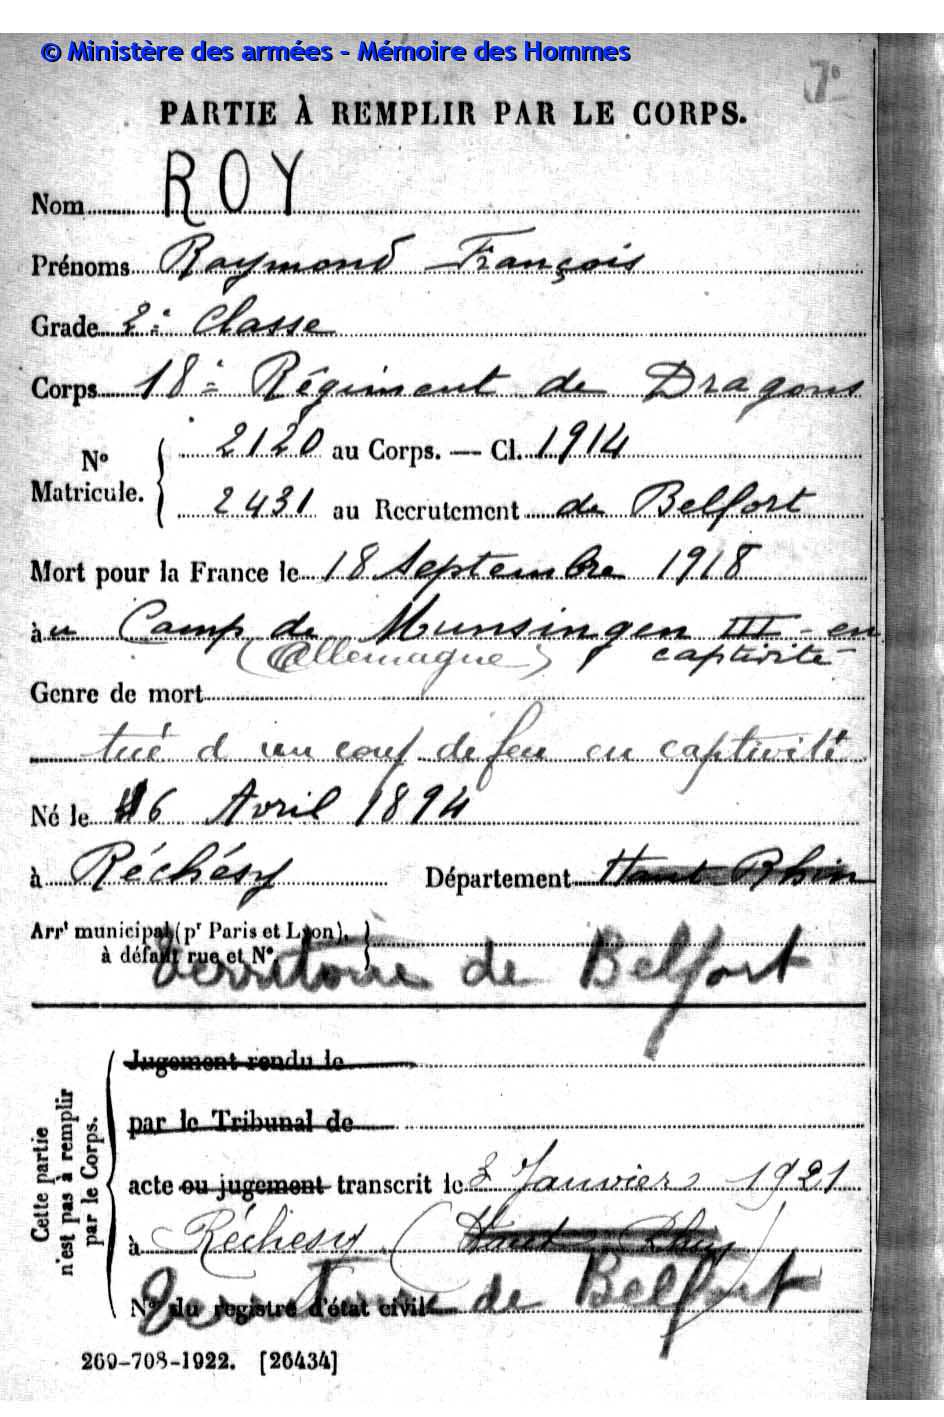 © Ministère des armées - Mémoire des Hommes
PARTIE À REMPLIR PAR LE CORPS.
Nom ROY
Prénoms Raymond François
Grade 2e Classe
Corps 18e Régiment de Dragons
N° Matricule. { 2120 au Corps. — Cl. 1914
2431 au Recrutement de Belfort
Mort pour la France le 18 Septembre 1918
à u Camp de Munsingen III - en
(Allemagne) captivité
Genre de mort
tué d un coup de feu en captivité
Né le 16 Avril 1894
à Réchésy Département Haut Rhin
Arrt municipal (pr Paris et Lyon),
à défaut rue et N°.
Territoire de Belfort
Cette partie n'est pas à remplir par le Corps.
Jugement rendu le
par le Tribunal de
acte ou jugement transcrit le 3 Janvier 1921
à Réchésy (Haut Rhin)
N° du registre d'état civil
Territoire de Belfort
269-708-1922. [26434]